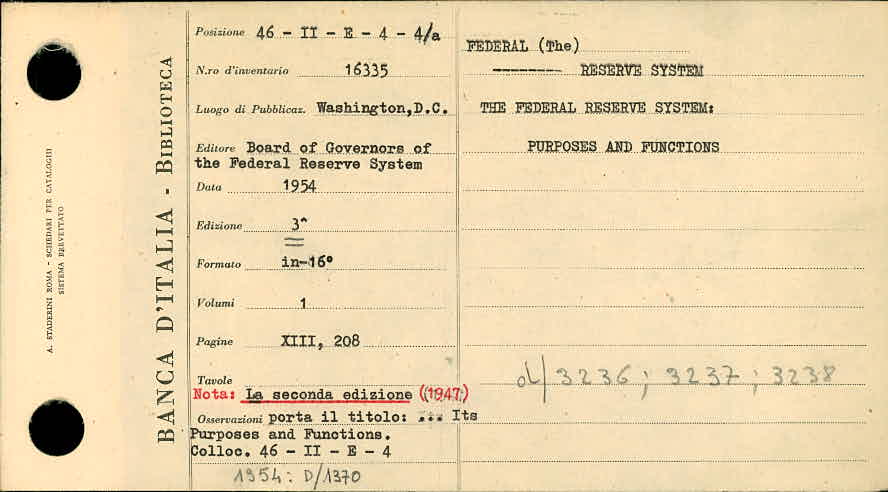 A. STADERINI ROMA - SCHEDARI PER CATALOGHI
SISTEMA BREVETTATO
BANCA D'ITALIA - BIBLIOTECA
Posizione 46 - II - E - 4 - 4/a
N.ro d'inventario 16335
Luogo di Pubblicaz. Washington,D.C.
Editore Board of Governors of
the Federal Reserve System
Data 1954
Edizione 3^
Formato in-16°
Volumi 1
Pagine XIII, 208
Tavole
Nota: La seconda edizione (1947)
Osservazioni porta il titolo: ... Its
Purposes and Functions.
Colloc. 46 - II - E - 4
1954: D/1370
FEDERAL (The)
-------- RESERVE SYSTEM
THE FEDERAL RESERVE SYSTEM:
PURPOSES AND FUNCTIONS
d/3236; 3237; 3238